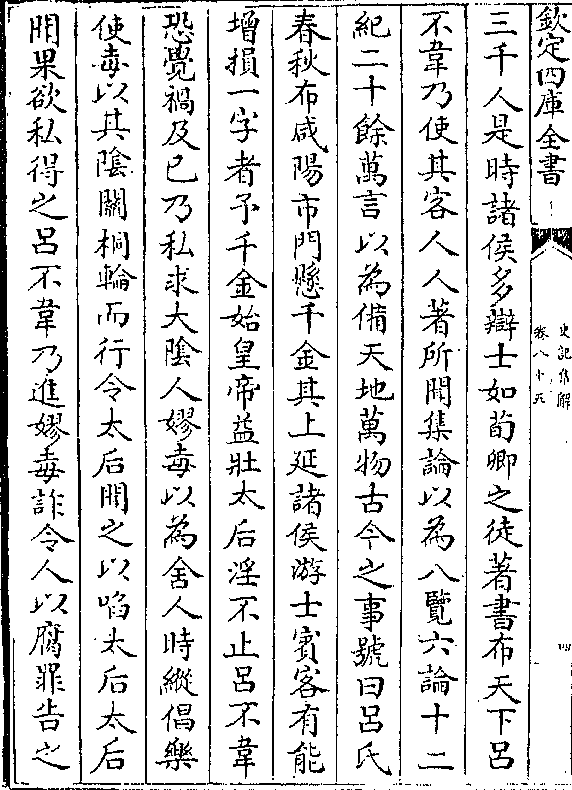 欽定四庫全書
史記集解
卷八十五
四
三千人是時諸侯多辯士如荀卿之徒著書布天下呂
不韋乃使其客人人著所聞集論以為八覽六論十二
紀二十餘萬言以為備天地萬物古今之事號曰呂氏
春秋布咸陽市門懸千金其上延諸侯游士賓客有能
增損一字者予千金始皇帝益壯太后淫不止呂不韋
恐覺禍及已乃私求大陰人嫪毐以為舍人時縱倡樂
使毐以其陰關桐輪而行令太后聞之以啗太后太后
聞果欲私得之呂不韋乃進嫪毐詐令人以腐罪告之